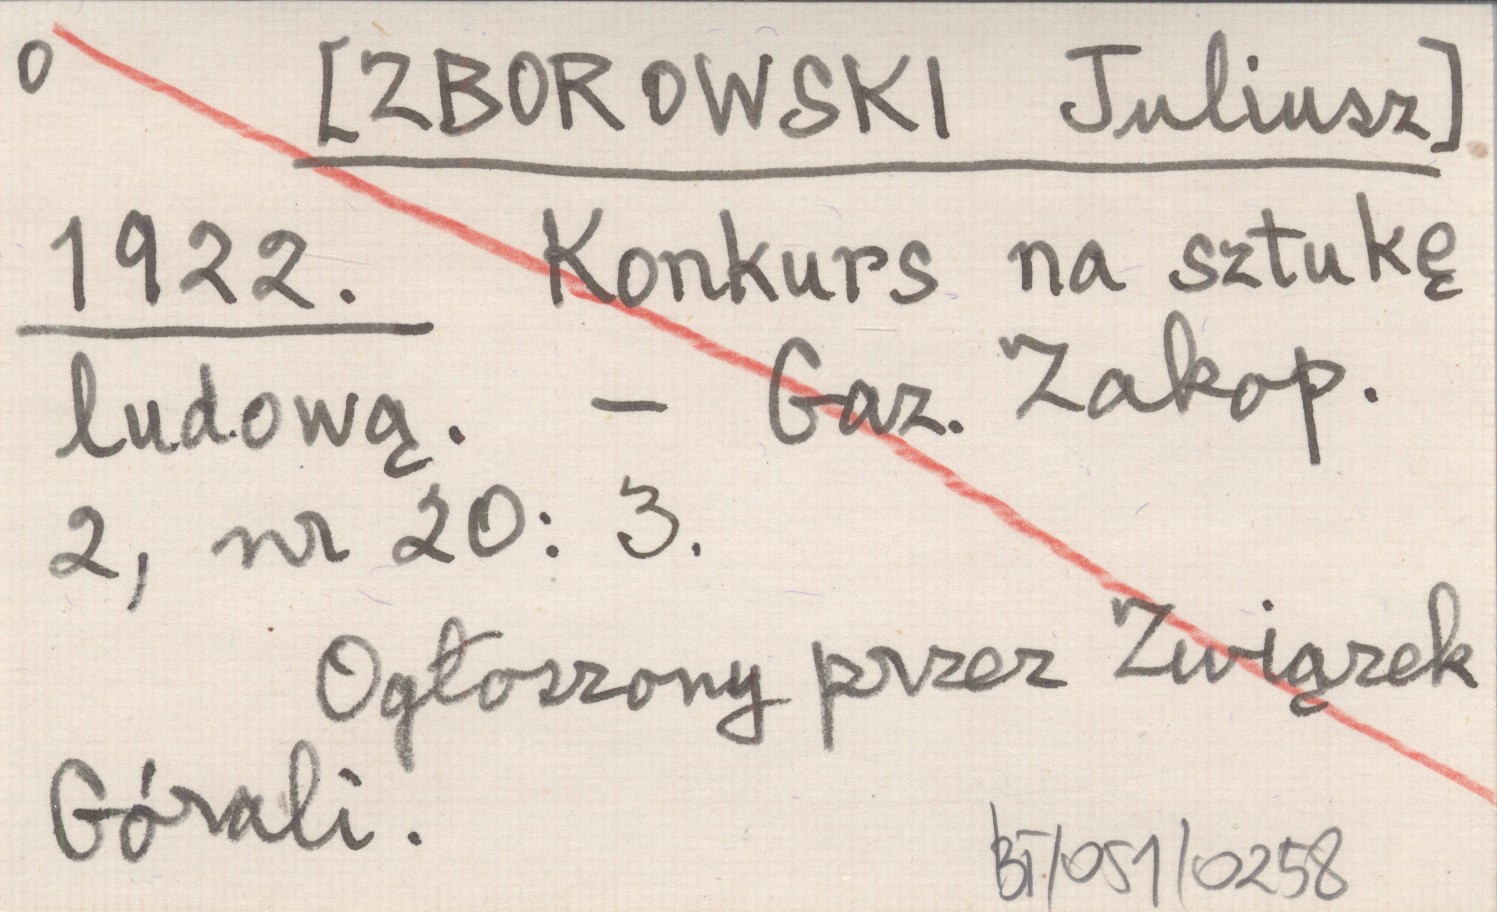 o [ZBOROWSKI Juliusz]
1922. Konkurs na sztukę
ludową. — Gaz. Zakop.
2, nr 20: 3.
Ogłoszony przez Związek
Górali.
BT/051/0258